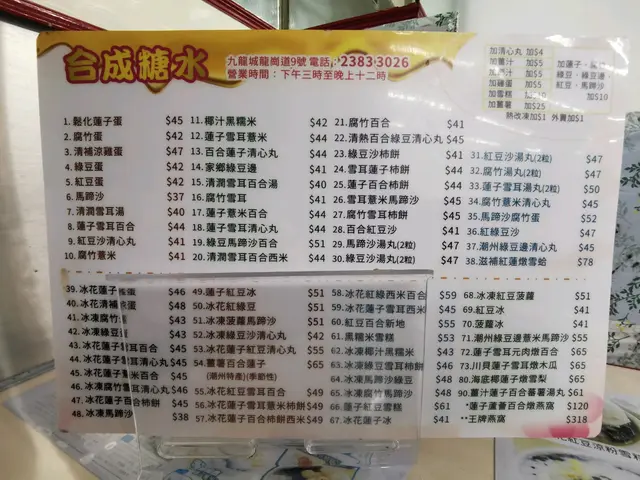 合成糖水
九龍城龍崗道9號 電話:23833026
營業時間：下午三時至晚上十二時
加清心丸 加$4
加薑汁 加$5
加雞蛋 加$5
加雪糕 加$10
加薑薯 加$25
綠豆·綠豆邊
紅豆·馬蹄沙
熱改凍加$1 外賣加$1
1. 鬆化蓮子蛋 $45
2. 腐竹蛋 $42
3. 清補涼雞蛋 $47
4. 綠豆蛋 $42
5. 紅豆蛋 $42
6. 馬蹄沙 $37
7. 清潤雪耳湯 $40
8. 蓮子雪耳百合 $44
9. 紅豆沙清心丸 $41
10. 腐竹薏米 $41
11. 椰汁黑糯米 $42
12. 蓮子雪耳薏米 $44
13. 百合蓮子清心丸 $44
14. 家鄉綠豆邊 $41
15. 清潤雪耳百合湯 $40
16. 腐竹雪耳 $41
17. 蓮子薏米百合 $44
18. 蓮子薏米清心丸 $44
19. 綠豆馬蹄沙百合 $51
20. 清潤雪耳百合西米 $44
21. 腐竹百合 $41
22. 清熱百合綠豆清心丸 $45
23. 綠豆沙柿餅 $41
24. 雪耳蓮子柿餅 $44
25. 蓮子百合柿餅 $44
26. 雪耳薏米馬蹄沙 $45
27. 腐竹雪耳柿餅 $45
28. 百合紅豆沙 $41
29. 馬蹄沙湯丸(2粒) $47
30. 綠豆沙湯丸(2粒) $47
31. 紅豆沙湯丸(2粒) $47
32. 腐竹湯丸(2粒) $47
33. 蓮子雪耳湯丸(2粒) $50
34. 腐竹薏米清心丸 $45
35. 馬蹄沙腐竹蛋 $52
36. 紅綠豆沙 $41
37. 潮州綠豆邊清心丸 $45
38. 滋補紅蓮燉雪蛤 $78
39. 冰花蓮子 $46
40. 冰花清補涼 $48
41. 冰凍腐竹 $43
42. 冰凍綠豆 $43
43. 冰花蓮子 百合 $45
44. 冰花蓮子 清心丸 $45
45. 冰花蓮子 米百合 $45
46. 冰凍腐竹 清心丸 $46
47. 冰花蓮子百合柿餅 $45
48. 冰凍馬蹄沙 $38
49. 冰花蓮子紅豆冰 $51
50. 冰花紅綠豆冰 $51
51. 冰凍菠蘿馬蹄沙 $51
52. 冰凍綠豆沙清心丸 $42
53. 冰凍蓮子紅豆清心丸 $55
54. 薑薯百合蓮子 $65
(潮州特產)(季節性)
55. 冰花雪耳紅豆冰 $49
56. 冰花蓮子雪耳薏米柿餅 $49
57. 冰凍蓮子百合柿餅西米 $49
58. 冰花紅綠西米百合 $59
59. 冰花蓮子雪耳西米
60. 紅豆百合新地
61. 黑糯米雪糕
62. 冰凍椰汁黑糯米
63. 冰花綠豆雪耳柿餅
64. 冰凍馬蹄沙綠豆
65. 冰凍百合馬蹄沙
66. 蓮子紅豆雪糕
67. 冰花蓮子冰 $41
68. 冰凍紅豆菠蘿 $51
69. 紅豆冰 $41
70. 菠蘿冰 $41
71. 潮州綠豆邊薏米馬蹄沙 $55
72. 蓮子雪耳元肉燉百合 $65
73. 川貝蓮子雪耳燉木瓜 $65
80. 海底椰蓮子燉雪梨 $65
90. 薑汁蓮子百合薯湯丸 $61
*蓮子蓮薈百合燉燕窩 $120
**王牌燕窩 $318